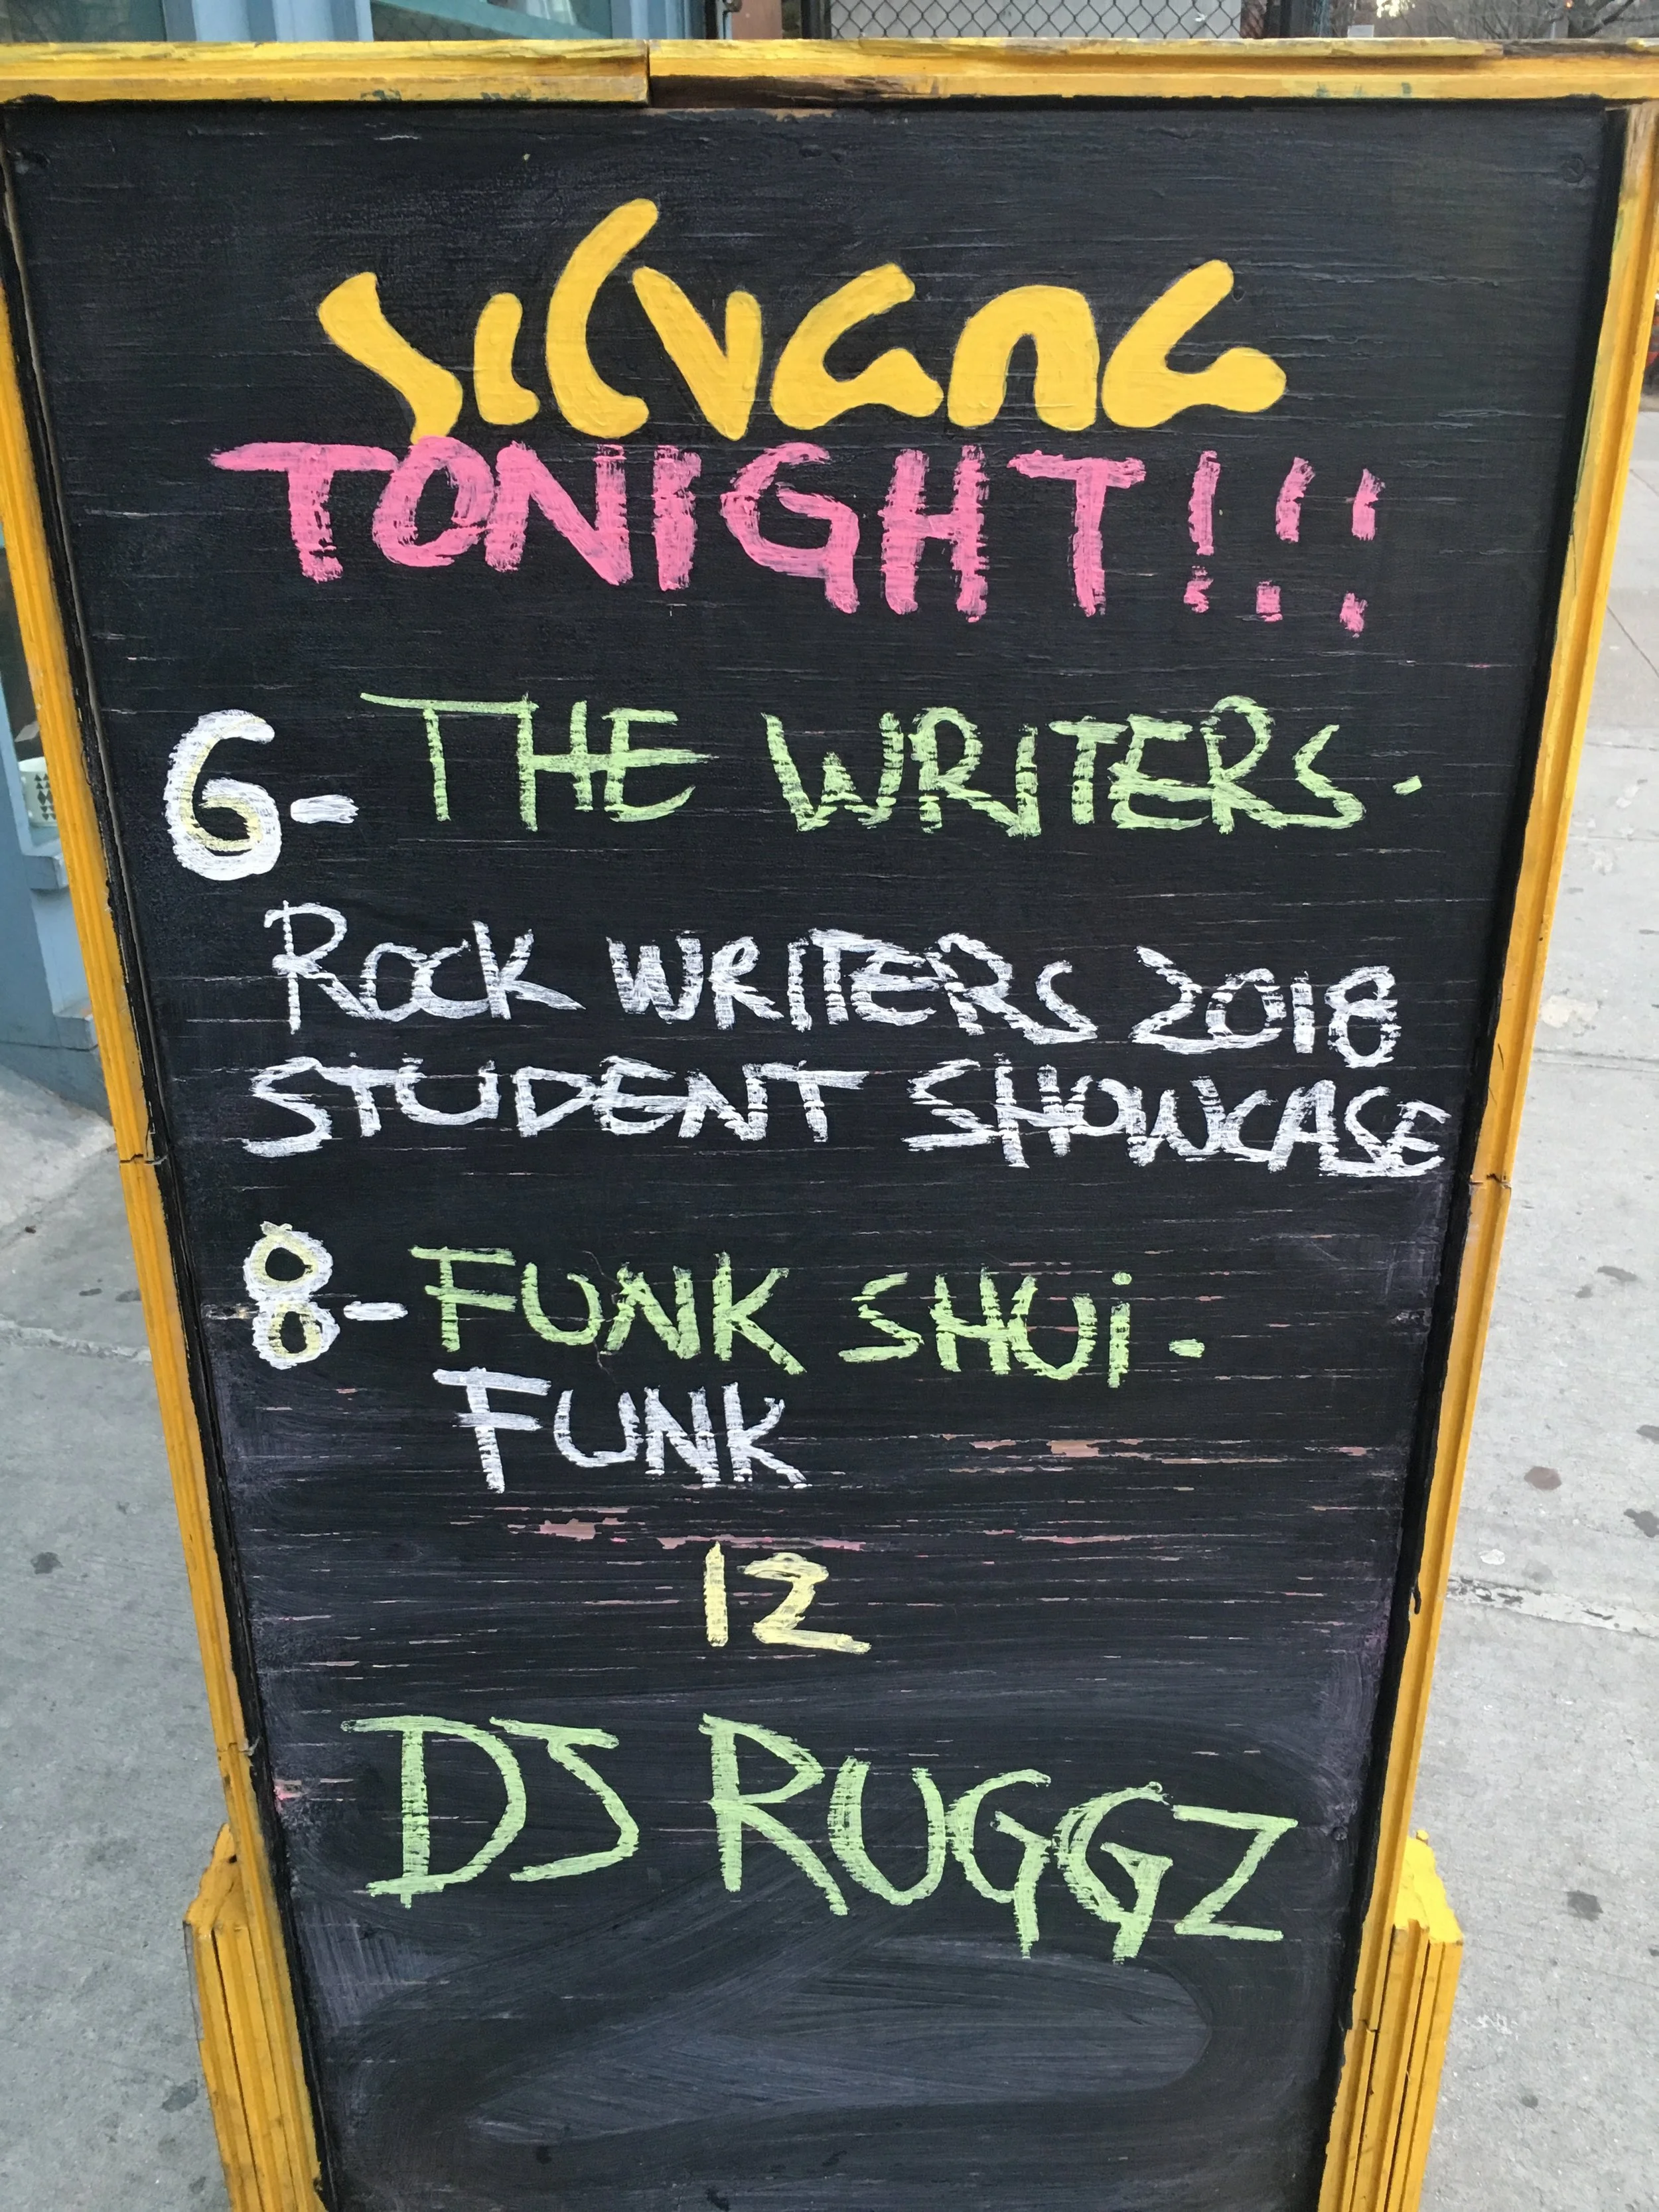 silvana
TONIGHT!!!
6- THE WRITERS.
ROCK WRITERS 2018
STUDENT SHOWCASE
8- FUNK SHUi.
FUNK
12
DJ RUGGZ